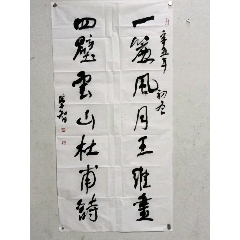 辛丑年
初冬
一簾風月王維畫
四壁雲山杜甫詩